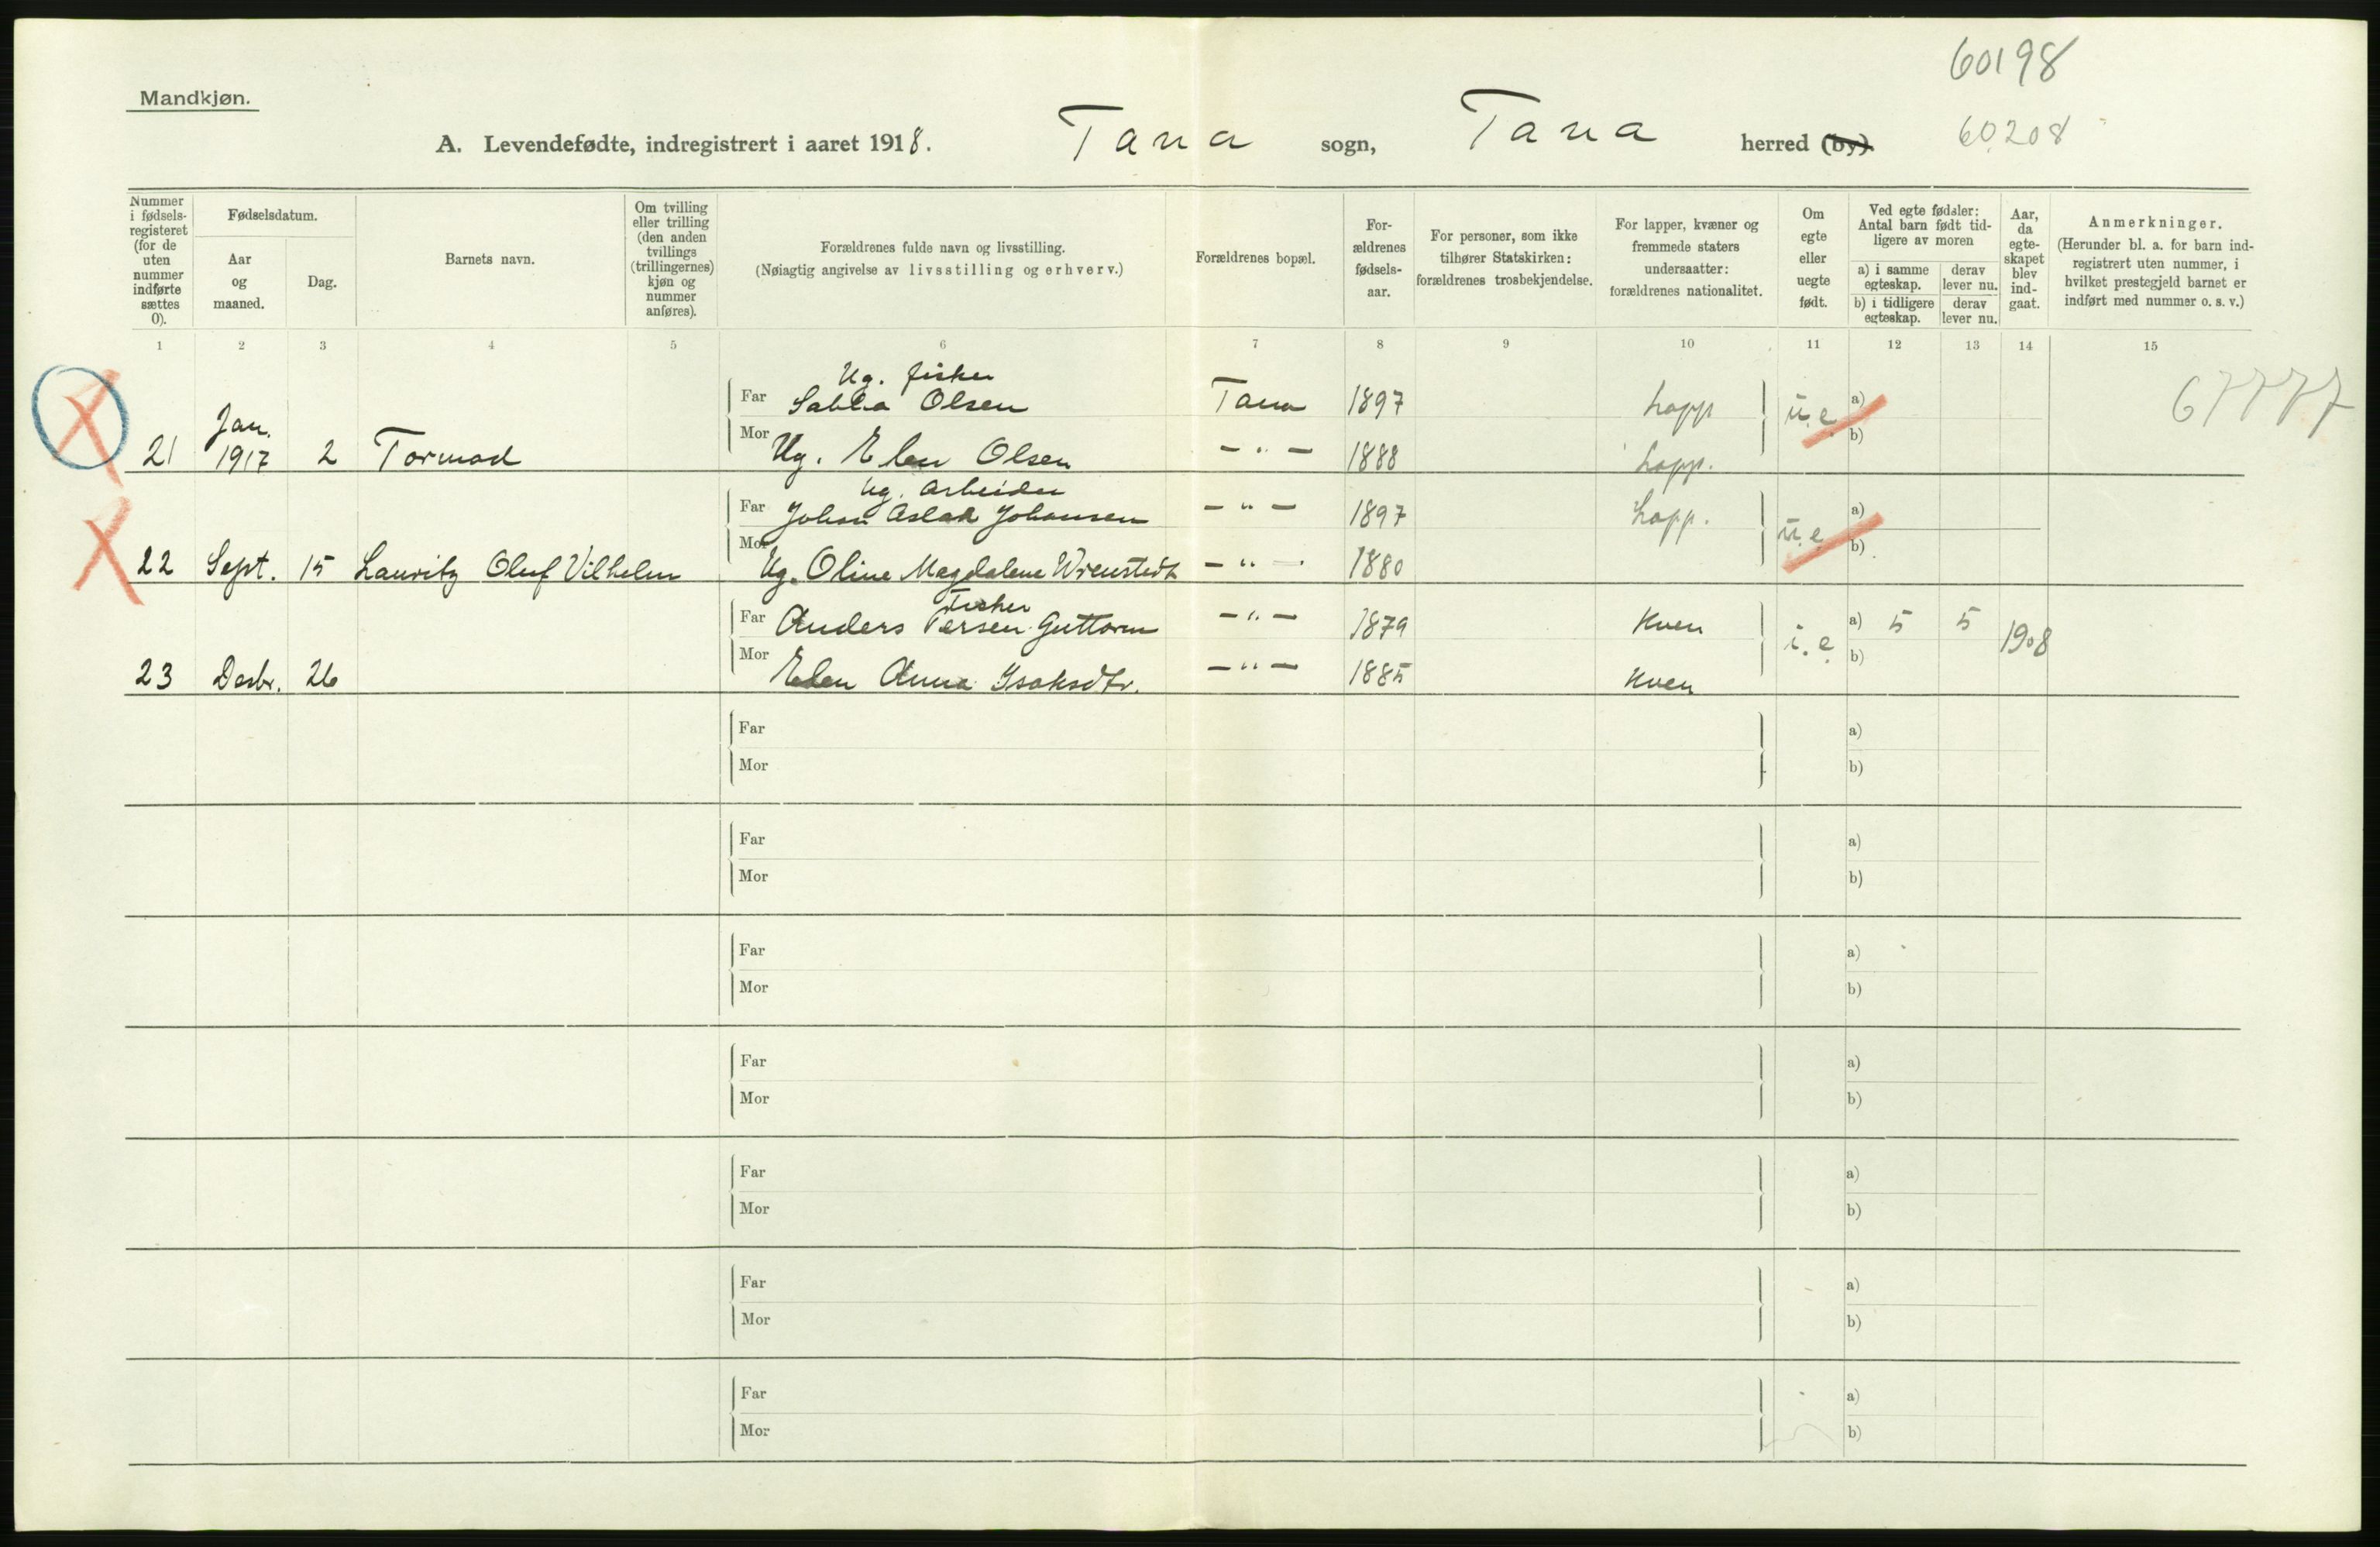 60198
Mandkjøn.
A. Levendefødte, indregistrert i aaret 1918. Tana sogn, Tana herred (by)
60208
Nummer i fødsels-registeret (for de uten nummer indførte sættes 0).
Fødselsdatum.
Aar og maaned.
Dag.
Barnets navn.
Om tvilling eller trilling (den anden tvillings (trillingernes) kjøn og nummer anføres).
Forældrenes fulde navn og livsstilling.
(Nøiagtig angivelse av livsstilling og erhverv.)
Forældrenes bopæl.
For-ældrenes fødsels-aar.
For personer, som ikke tilhører Statskirken: forældrenes trosbekjendelse.
For lapper, kvæner og fremmede staters undersaatter: forældrenes nationalitet.
Om egte eller uegte født.
Ved egte fødsler: Antal barn født tid-ligere av moren
a) i samme egteskap.
derav lever nu.
b) i tidligere egteskap.
derav lever nu.
Aar, da egte-skapet blev ind-gaat.
Anmerkninger.
(Herunder bl. a. for barn ind-registrert uten nummer, i hvilket prestegjeld barnet er indført med nummer o. s. v.)
1 2 3 4 5 6 7 8 9 10 11 12 13 14 15
Ug. fisker
Far Olsen Tana 1897 Lapp a) 67777
21 Jan. 1917 2 Tormod Mor Ug. Elen Olsen — " — 1888 Lapp. u.e. b)
Ug. Arbeider
Far Johan Aslak Johansen — " — 1897 Lapp. a)
22 Sept. 15 Lauritz Oluf Vilhelm Mor Ug. Oline Magdalene — " — 1880 u.e. b)
Fisker
Far Anders Persen Guttorm — " — 1879 Kven a) 5 5 1908
23 Desbr. 26 Mor Elen Anna Isaksdtr. — " — 1885 Kven i.e. b)
Far a)
Mor b)
Far a)
Mor b)
Far a)
Mor b)
Far a)
Mor b)
Far a)
Mor b)
Far a)
Mor b)
Far a)
Mor b)